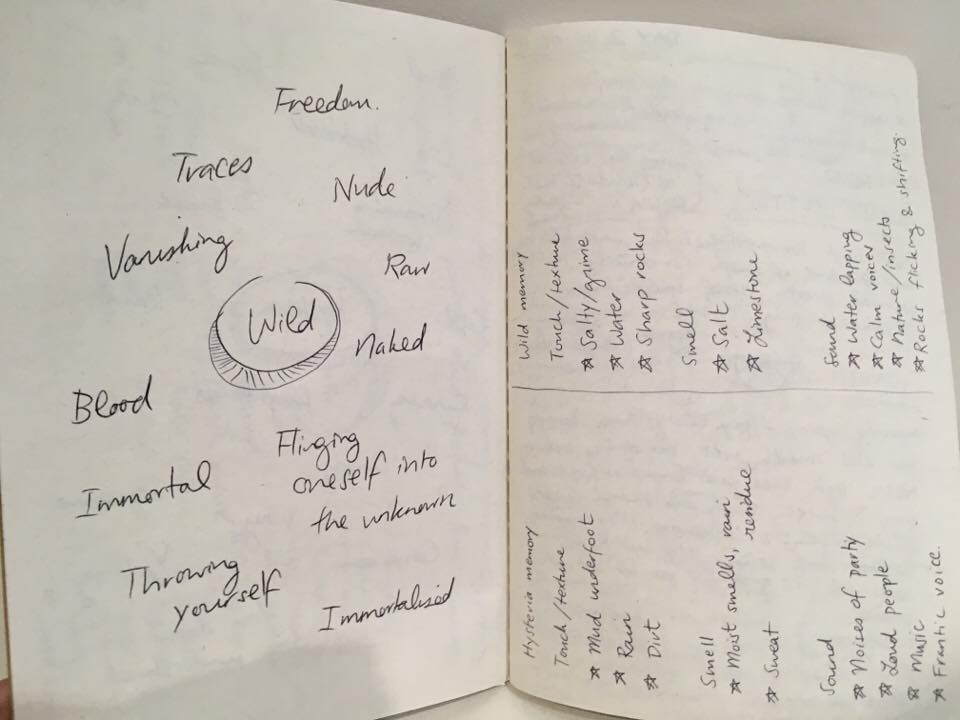 Freedom.
Traces
Nude
Vanishing
Raw
Wild
Naked
Blood
Flinging
oneself into
the unknown
Immortal
Throwing
yourself
Immortalised
Wild memory
Touch/texture
☆ Salty/grime
☆ Water
☆ Sharp rocks
Smell
☆ Salt
☆ Limestone
Sound
☆ Water lapping
☆ Calm voices
☆ Nature/insects
☆ Rocks flicking & shifting.
Hysteria memory
Touch/texture
☆ Mud underfoot
☆ Rain
☆ Dirt
Smell
☆ Moist smells, rain
residue
☆ Sweat
Sound
☆ Noises of party
☆ Loud people
☆ Music
☆ Frantic voice.